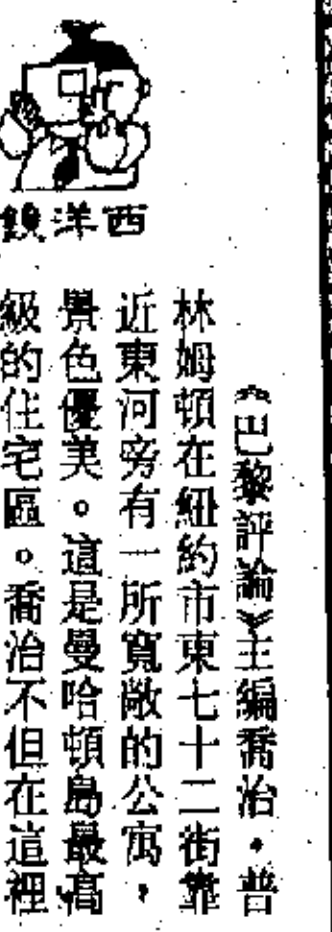 西洋鏡
《巴黎評論》主編喬治・普
林姆頓在紐約市東七十二街靠
近東河旁有一所寬敞的公寓，
景色優美。這是曼哈頓島最高
級的住宅區。喬治不但在這裡